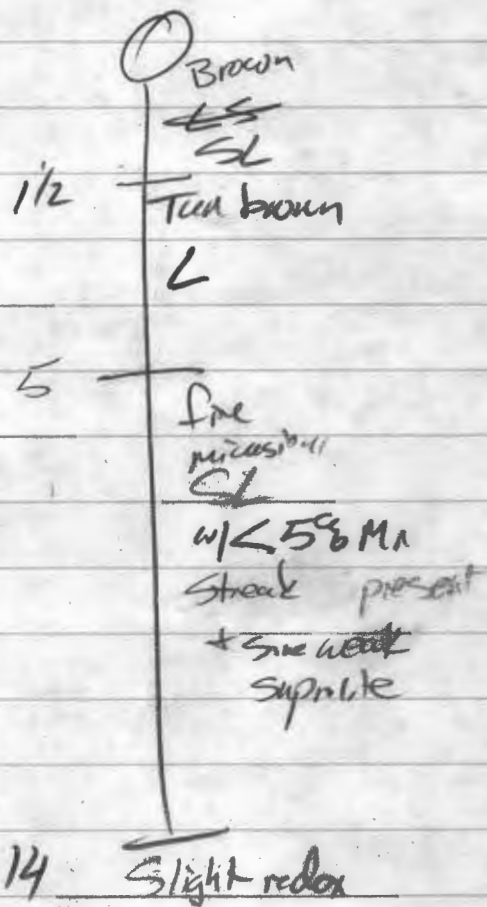 Brown
LS
SL
1 1/2
Tan brown
L
5
fine
SL
w/<5% Mn
Streak present
+ some weak
saprolite
14 Slight redox